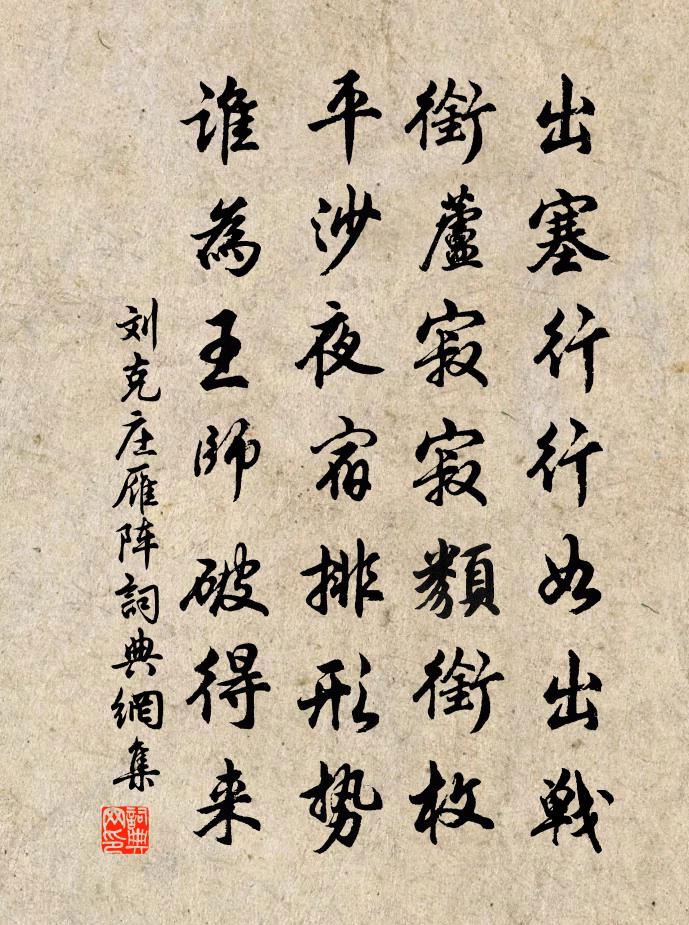 出塞行行如出戰
銜蘆寂寂類銜枚
平沙夜宿排形势
誰為王師破得来
刘克庄雁阵詞典網集
詞典
网印